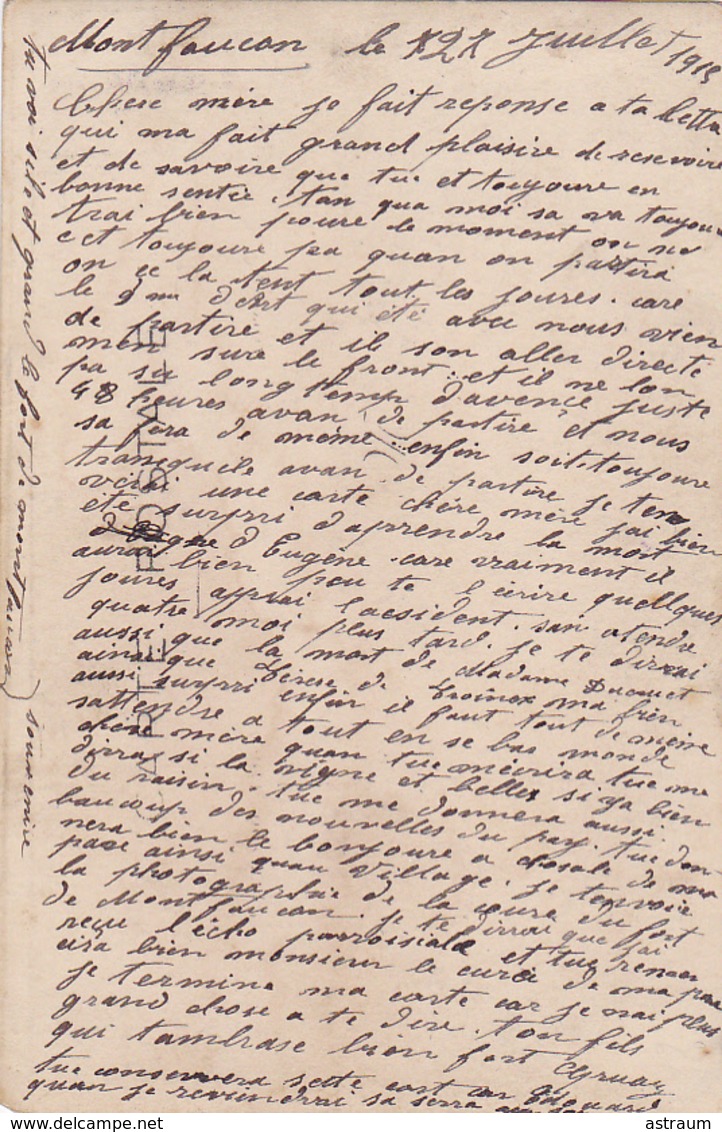 Mont faucon le 27 Juillet 1915
Chere mère je fait reponse a ta lettre
qui ma fait grand plaisire de resevoire
et de savoire que tue et toujoure en
bonne sentée. tan qua moi sa va toujoure
trai bien poure le moment on ne
cet toujoure pa quan on partira
on ce la tent tout les joures. care
le 9me dont qui été avec nous vien
de partire et il son aller directe
men sure le front. et il ne lon
pa su longtemp d'avence juste
48 heures avan de partire et nous
sa sera de même. enfin soit toujoure
tranquile avan de partire je ten
verai une carte chère mère j'ai bien
été surpri d'apprendre la mort
d'Eugène. care vraiment il
aurai bien peu te l'écrire quellques
joures apprai l'acsident. san atendre
quatre moi plus tard. je te dirrai
aussi que la mort de Madame Ducuet
ainsi que Térese de Troinex ma bien
aussi surpri enfin il faut tout de meme
sattendre a tout en se bas monde
chère mère quan tue mécrira tue me
dirra si la vigne et belles si ya bien
du raisin. tue me donnera aussi
beaucoup des nouvelles du pay. tue don-
nera bien le bonjoure a chosale de ma
part ainsi quau Village. je tenvoie
la photographie de la coure du fort
de Montfaucon. je te dirrai que j'ai
reçu l'écho parroisiale et tue remer
cira bien monsieur le curé de ma part
je termine ma carte car je nai plus
grand chose a te dire. ton fils
qui tambrase bien fort
tue conservera sette cart
quan je reviendrai sa serra
tu voi sile et grand le fort de
souvenire
CARTE POSTALE